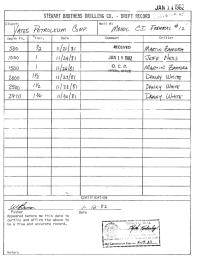 JAN 14 1982
STEWART BROTHERS DRILLING CO. - DRIFT RECORD
YATES PETROLEUM CORP. MODEL C.I. FEDERAL #12
Depth Ft. Date Comment Driller
500 1/2 11/21/81 RECEIVED MARTIN ZAMORA
1000 1 11/24/81 JAN 19 1982 JEFF NEIL
1500 1 11/26/81 O. C. D. MARTIN ZAMORA
2000 1 1/2 11/27/81 DANNY WHITE
2500 1 1/2 11/28/81 DANNY WHITE
2970 1 3/4 11/30/81 DANNY WHITE
Certification
Pusher Date
Appeared before me this date to
certify and affirm the above to
be a true and accurate record.
Notary